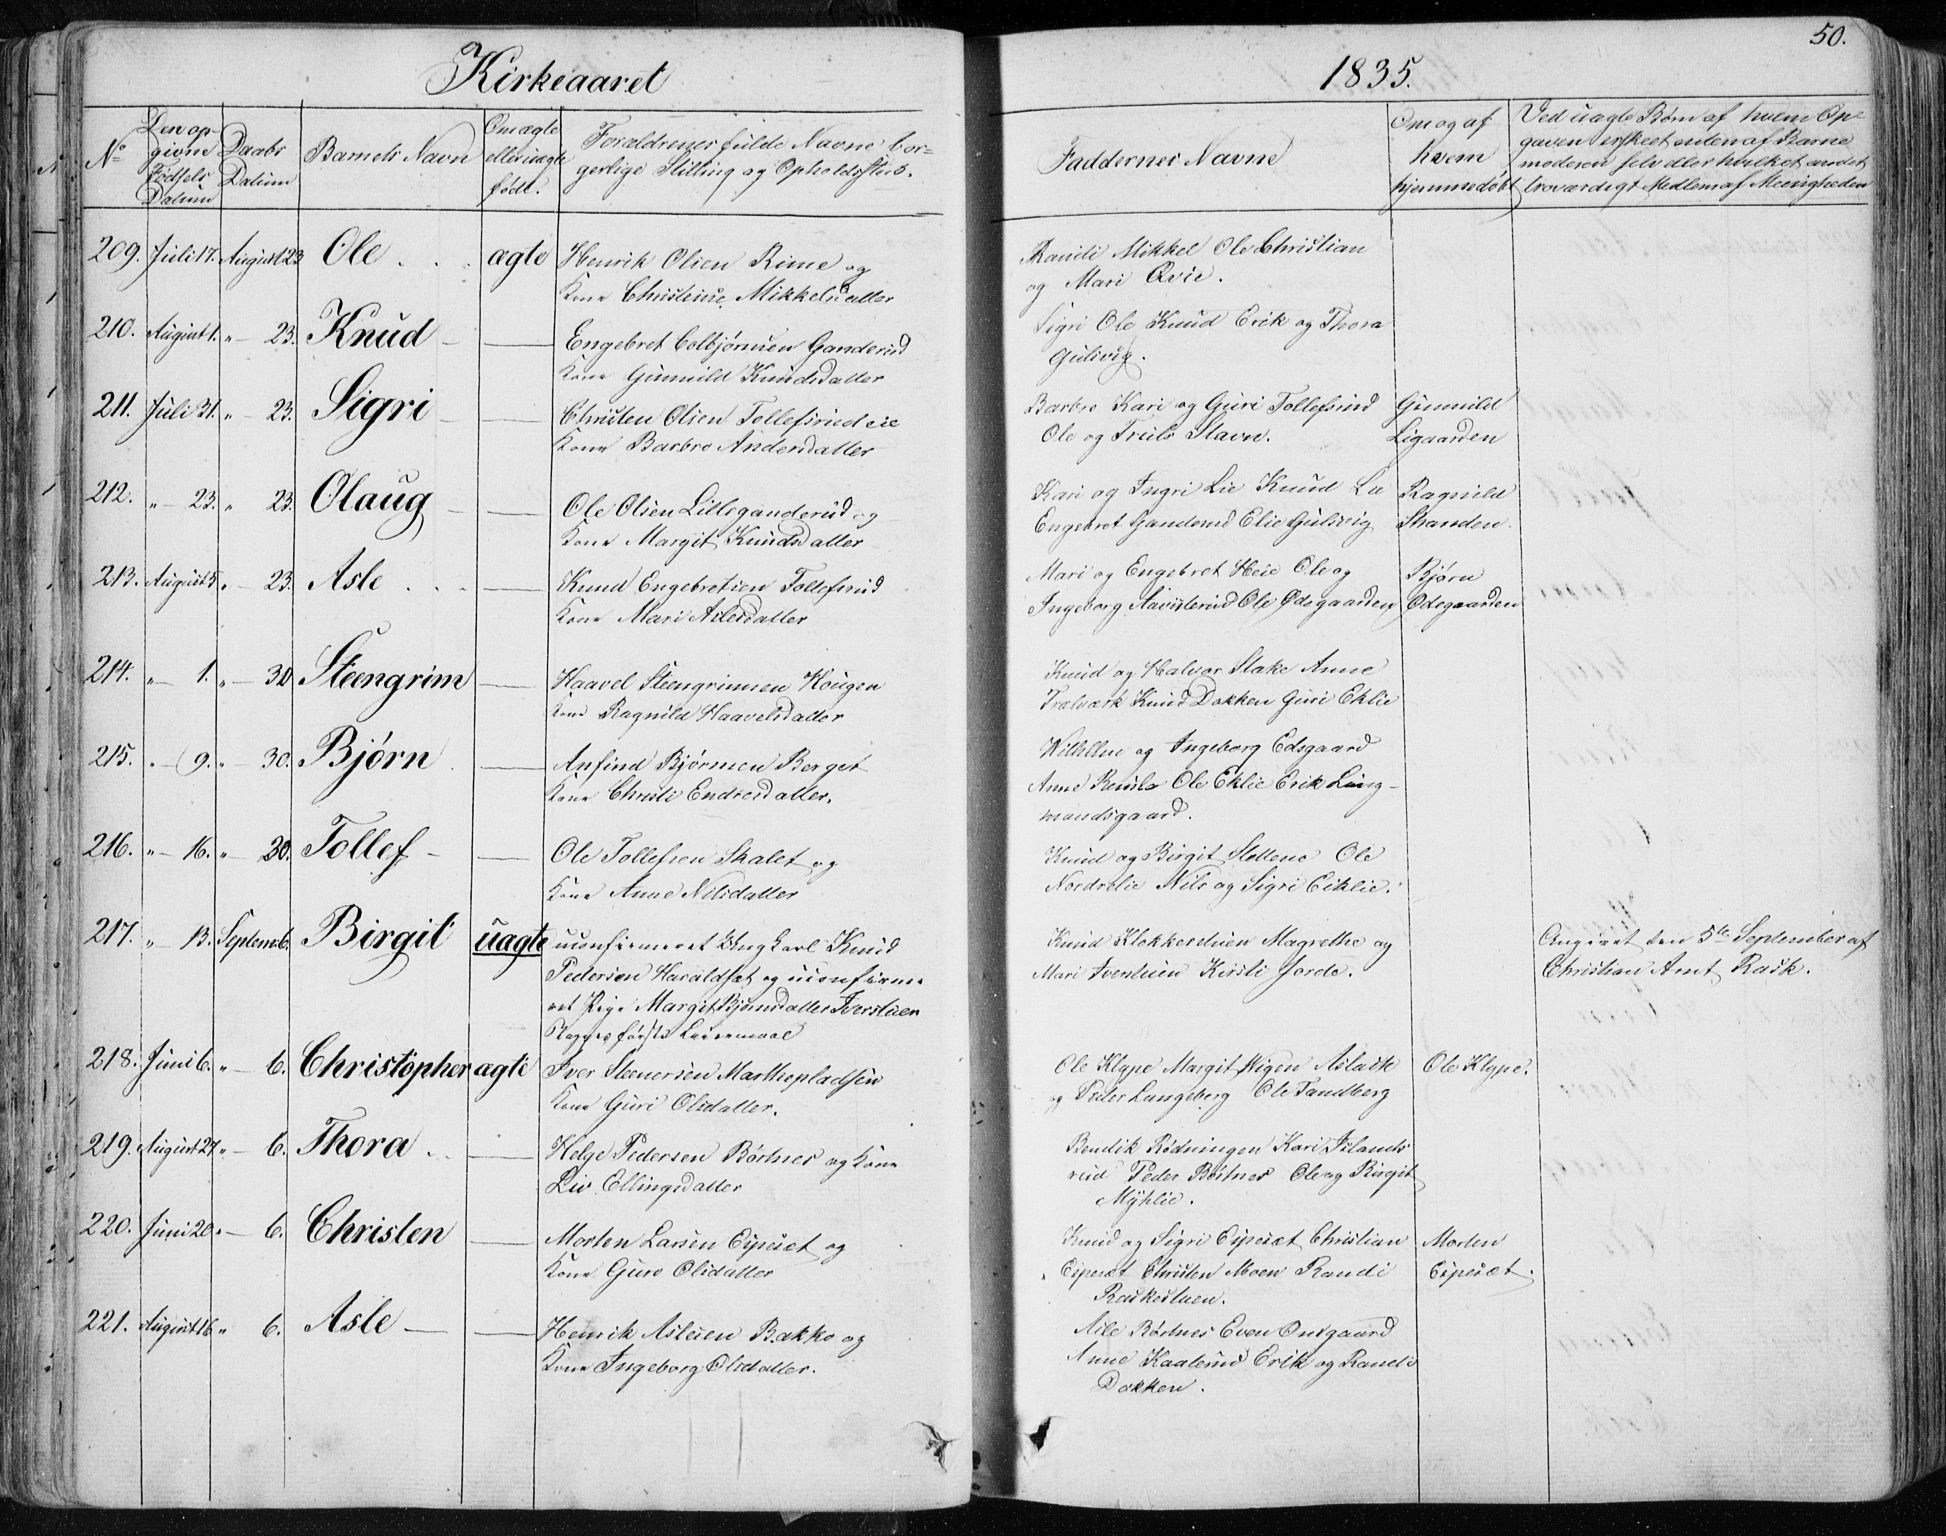 50.
Kirkeaaret
1835.
No
Den op-
givne
Fødsels
Datum
Daabs
Datum
Barnets Navn
Om ægte
eller uægte
født.
Forældrenes fulde Navne bor-
gerlige Stilling og Opholdssted.
Faddernes Navne
Om og af
hvem
hjemmedøbt
Ved uægte Børn af hvem Op-
gaven er skeet enten af Barne
moderen selv eller hvilket andet
troværdigt Medlem af Menigheden
209. Juli 17. August 23 Ole ægte Henrik Olsen Rime og
Kone Christine Mikkelsdatter
Randi Mikkel Ole Christian
og Mari Qvie.
210. August 1. " 23. Knud — Engebret Colbjørnsen Ganderud
Kone Gunnild Knudsdatter
Sigri Ole Knud Erik og Thora
Gulsvig.
211. Juli 31. " 23. Sigri — Christen Olsen Tollefsrud eie
Kone Barbro Andersdatter
Barbro Kari og Guri Tollefsrud
Ole og Truls Stavn.
Gunnild
Ligaarden
212. " 23. " 23. Olaug — Ole Olsen Lilleganderud og
Kone Margit Knudsdatter
Kari og Ingri Lie Knud Lie
Engebret Ganderud Elie Gulsvig
Ragnild
Skanden.
213. August 5 " 23. Asle — Knud Engebretsen Tollefsrud
Kone Mari Aslesdatter
Mari og Engebret Heie Ole og
Ingeborg Aavesterud Ole Ødegaarden
Bjørn
Odegaarden
214. " 1. " 30 Steengrim — Haavel Steengrimsen Hougen
Kone Ragnild Haavelsdatter
Knud og Halvor Stake Anne
Trælværk Knud Dokken Guri Eklie
215. " 9. " 30. Bjørn — Anfind Bjørnsen Berget
Kone Christi Endresdatter.
og Ingeborg Edsgaard
Anne Ole Eklie Erik Ling-
mandsgaard.
216. " 16. " 30. Tollef — Ole Tollefsen Skalet og
Kone Anne Nilsdatter
Knud og Birgit Slettene Ole
Nordrelie Nils og Sigri Eiklie.
217. " 13. Septemb. 6. Birgit uægte uconfirmeret Ungkarl Knud
Pedersen Haraldset og uconfirme
ret Pige Margit Bjørnsdatter Iverstuen
Begges første Leiermaal
Knud Klokkerstuen Magrethe og
Mari Iverstuen Kirsti Jorde.
Angivet den 5te September af
Christian Amt Rask.
218. Juni 6. " 6. Christopher ægte Iver Steenersen Marthepladsen
Kone Guri Olsdatter.
Ole Klype Margit Aslack
og Peder Langeberg Ole Sandberg
Ole Klype.
219. August 27 " 6. Thora — Helge Pedersen Børtnes og Kone
Liv Ellingsdatter
Bendik Rødningen Kari Islands
rud Peder Børtnes Ole og Birgit
Myhlie.
220. Juni 20. " 6. Christen — Morten Larsen Espeset og
Kone Guro Olsdatter
Knud og Sigri Espeset Christian
Espeset Christen Moen Randi
Raskestuen.
Morten
Espeset.
221. August 16 " 6. Asle — Henrik Aslesen Bakko og
Kone Ingeborg Olsdatter.
Asle Børtnes Even Onsgaard
Anne Kaalsrud Erik og Randi
Dokken.